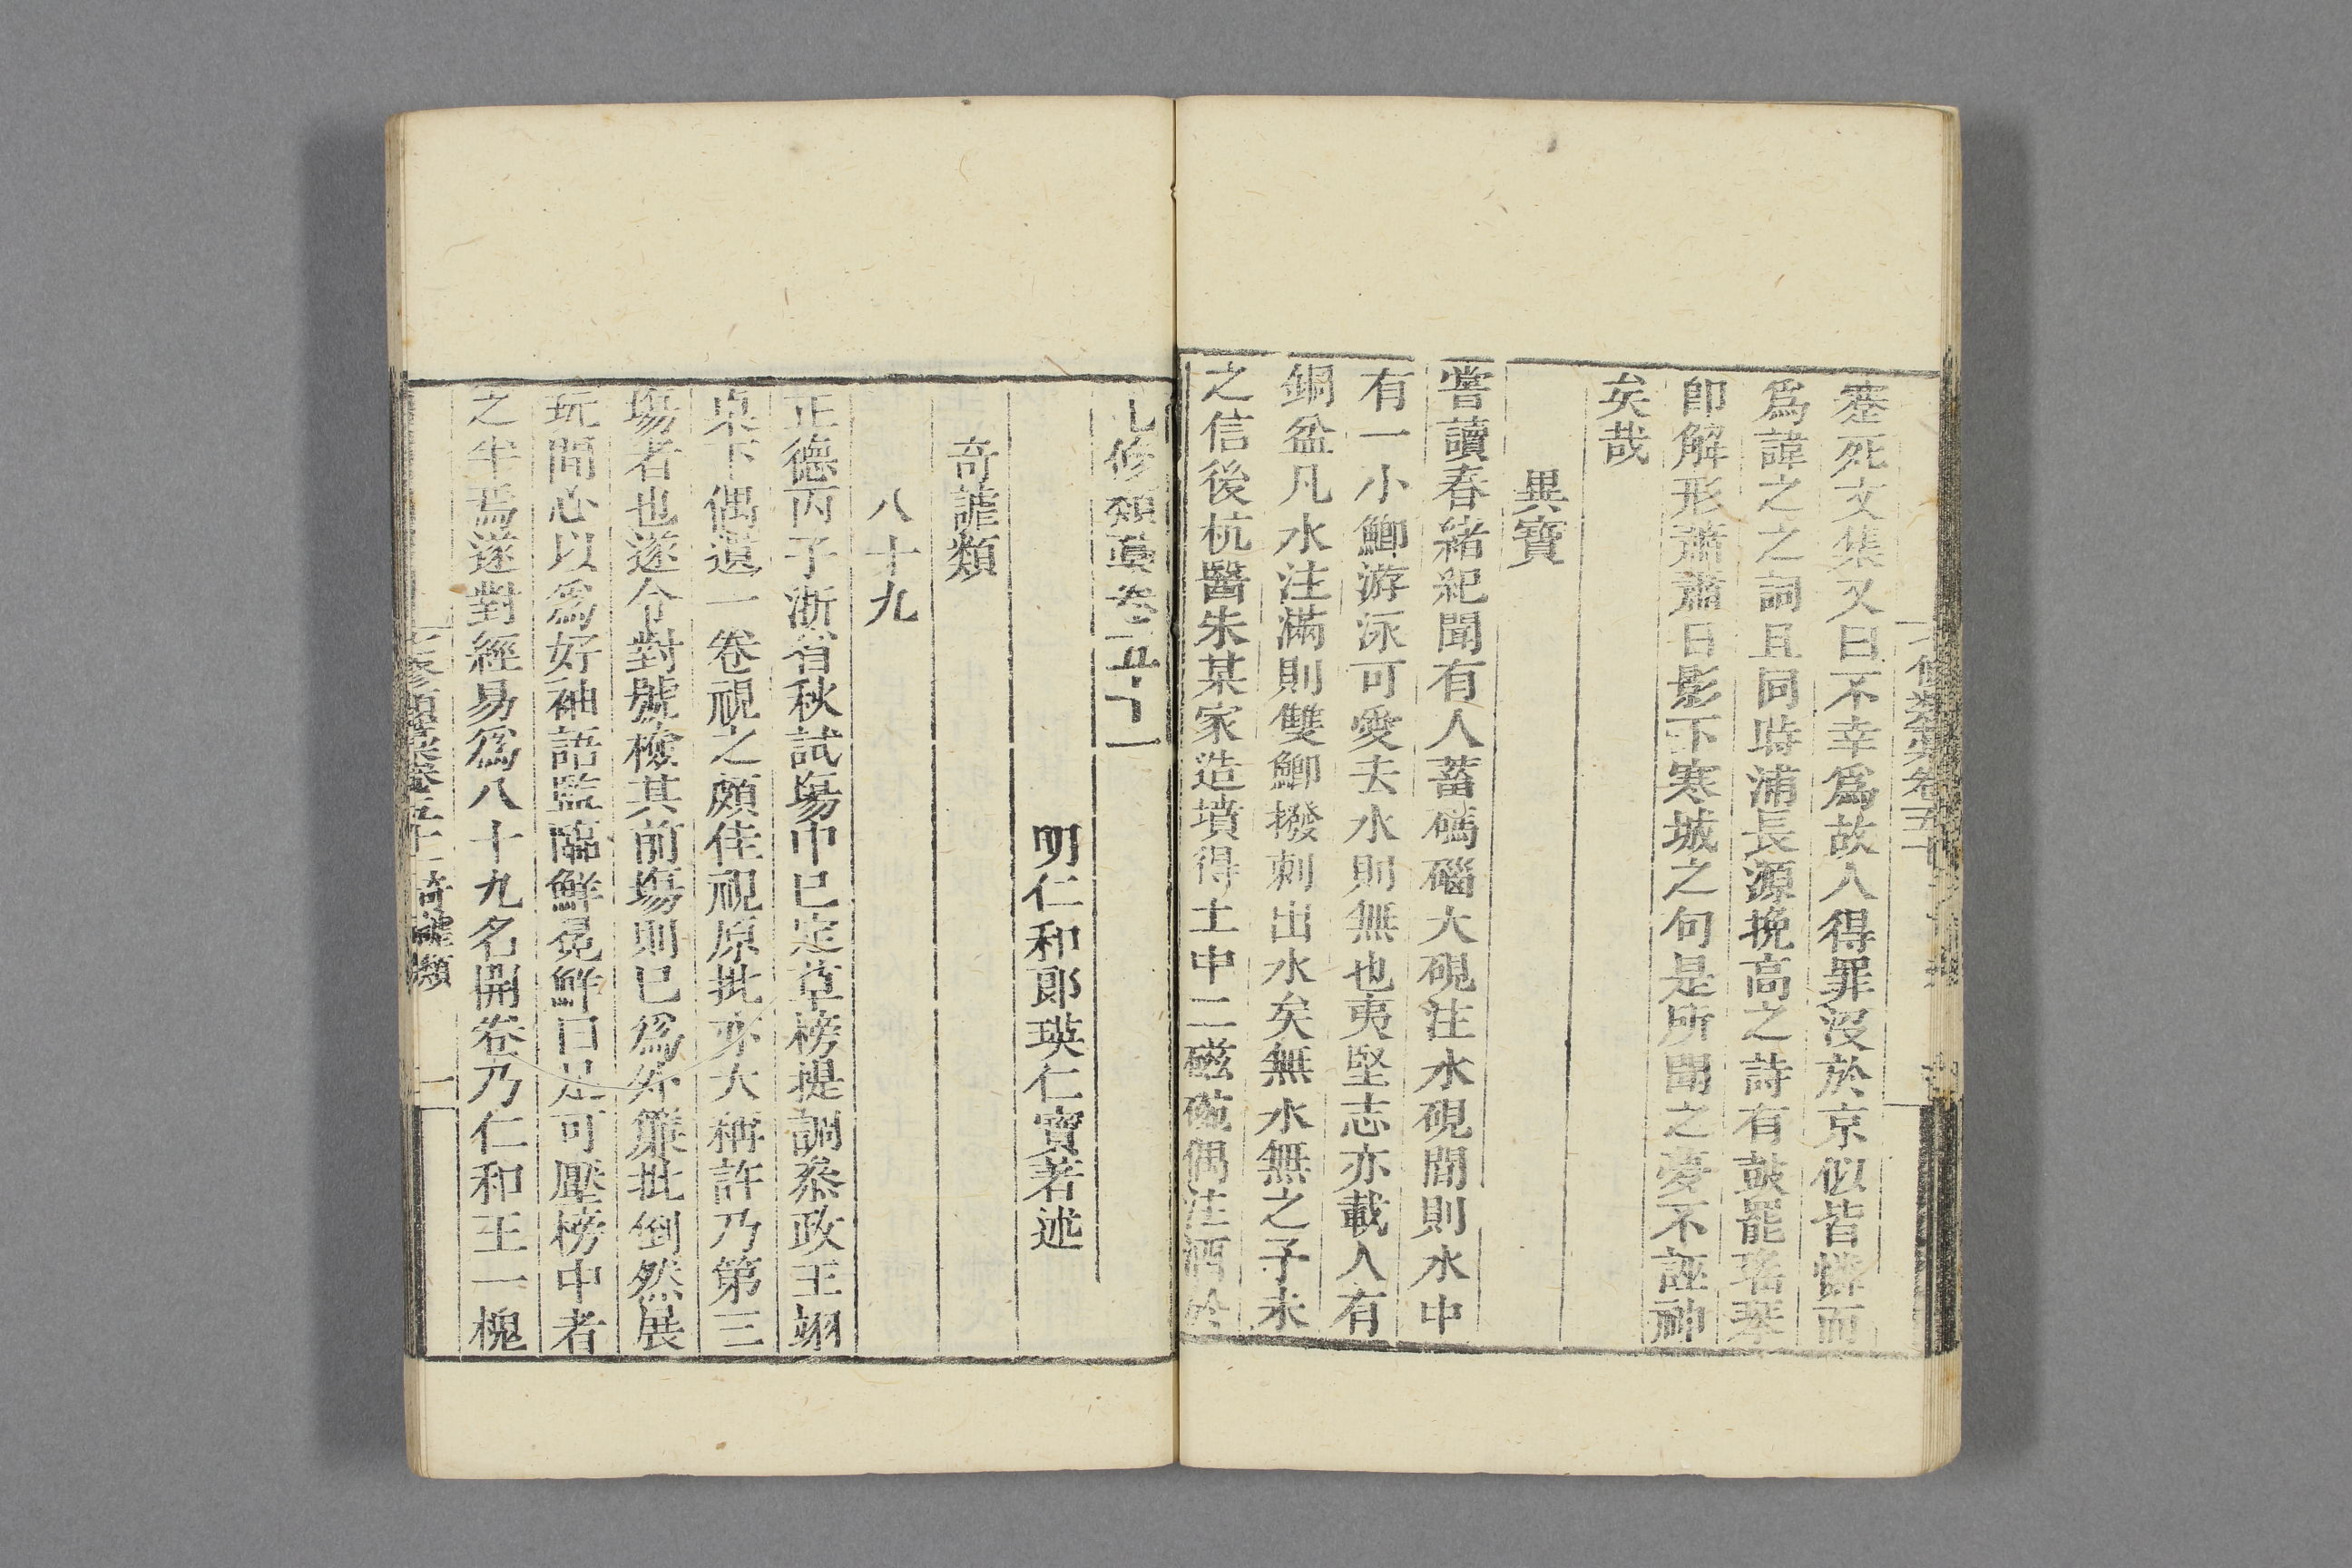 蹇死文集又曰不幸爲故人得罪没於京似皆憐而
爲諱之之詞且同時浦長源挽高之詩有鼓罷瑤琴
卽解形蕭蕭日影下寒城之句是所聞之憂不誣神
矣哉
異寶
嘗讀春緒紀聞有人蓄碼碯大硯注水硯間則水中
有一小鯽游泳可愛去水則無也夷堅志亦載人有
銅盆凡水注滿則雙鯽撥刺出水矣無水無之予未
之信後杭醫朱某家造墳得土中二磁碗偶注酒於
七修類藁卷五十一
明仁和郞瑛仁寶著述
奇謔類
八十九
正德丙子浙省秋試場中已定草榜提調叅政王翊
桌下偶遺一卷視之頗佳視原批亦大稱許乃第三
場者也遂令對號檢其前場則已爲外簾批倒然展
玩間心以爲好袖語監臨鮮冕鮮曰足可壓榜中者
之半焉遂對經易爲八十九名開卷乃仁和王一槐
七修類藁卷五十一 奇謔類 一